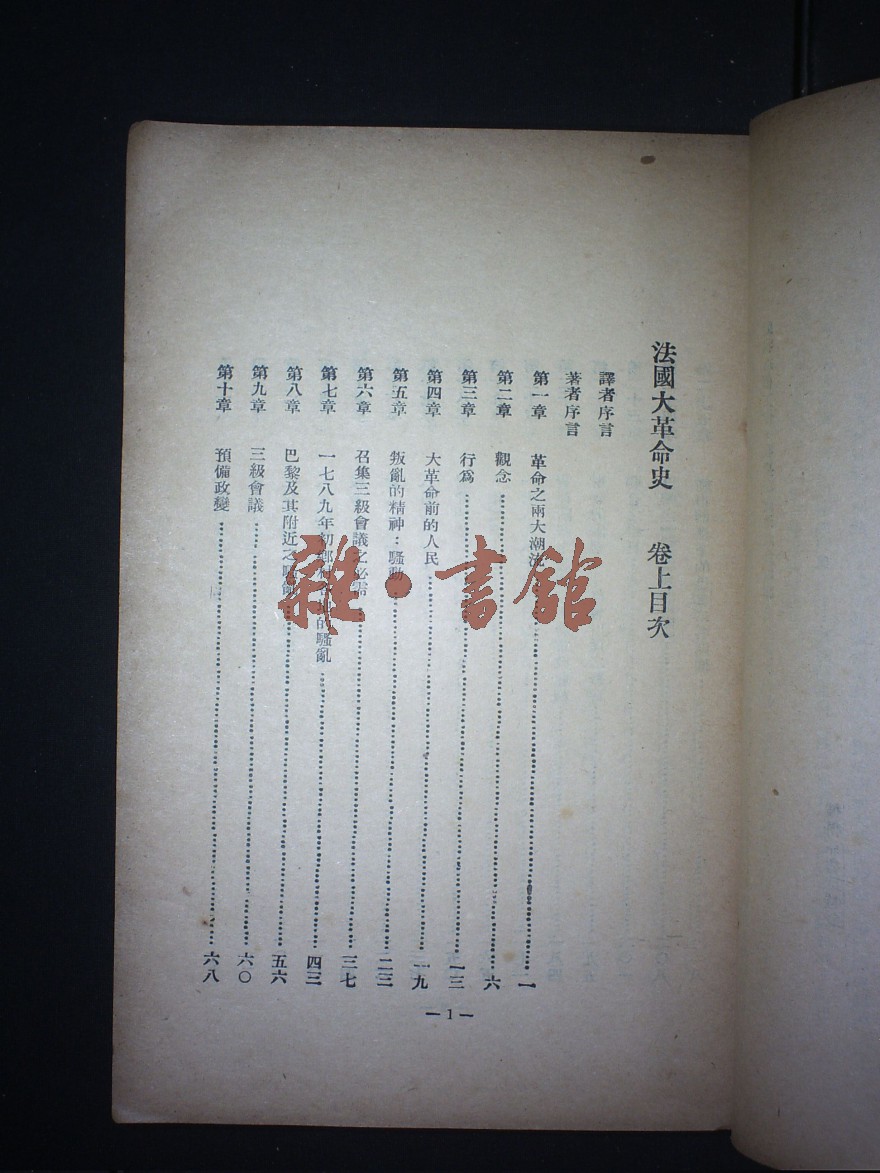 法國大革命史 卷上目次
譯者序言
著者序言
第一章 革命之兩大潮流 一
第二章 觀念 六
第三章 行爲 一三
第四章 大革命前的人民 一九
第五章 叛亂的精神：騷動 二三
第六章 召集三級會議之必需 三七
第七章 一七八九年初鄉村 的騷亂 四三
第八章 巴黎及其附近之騷亂 五六
第九章 三級會議 六〇
第十章 預備政變 六八
—1—
雜·書館